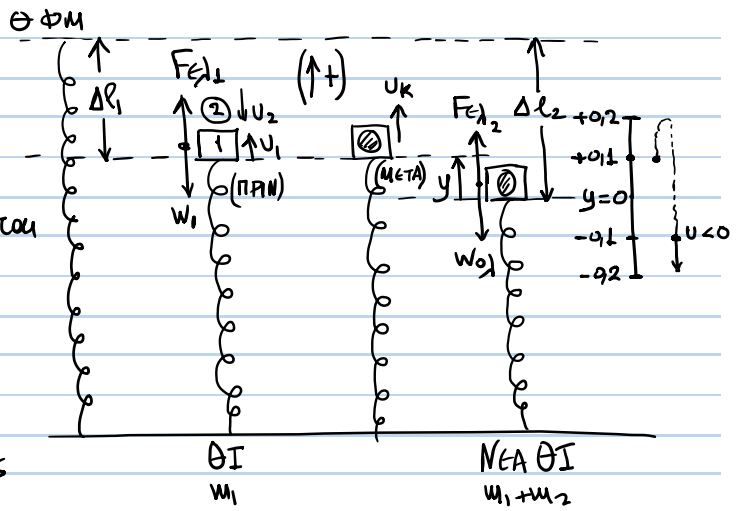 Θ ΦΜ
Δℓ₁
Fελ₁
(↑+)
② ↓υ₂
1 ↑υ₁
W₁
(ΠΡΙΝ)
υκ
(ΜΕΤΑ)
Fελ₂
Δℓ₂
y
Wολ
+0,2
+0,1
y=0
-0,1
-0,2
υ<0
ΘΙ
m₁
ΝΕΑ ΘΙ
m₁+m₂